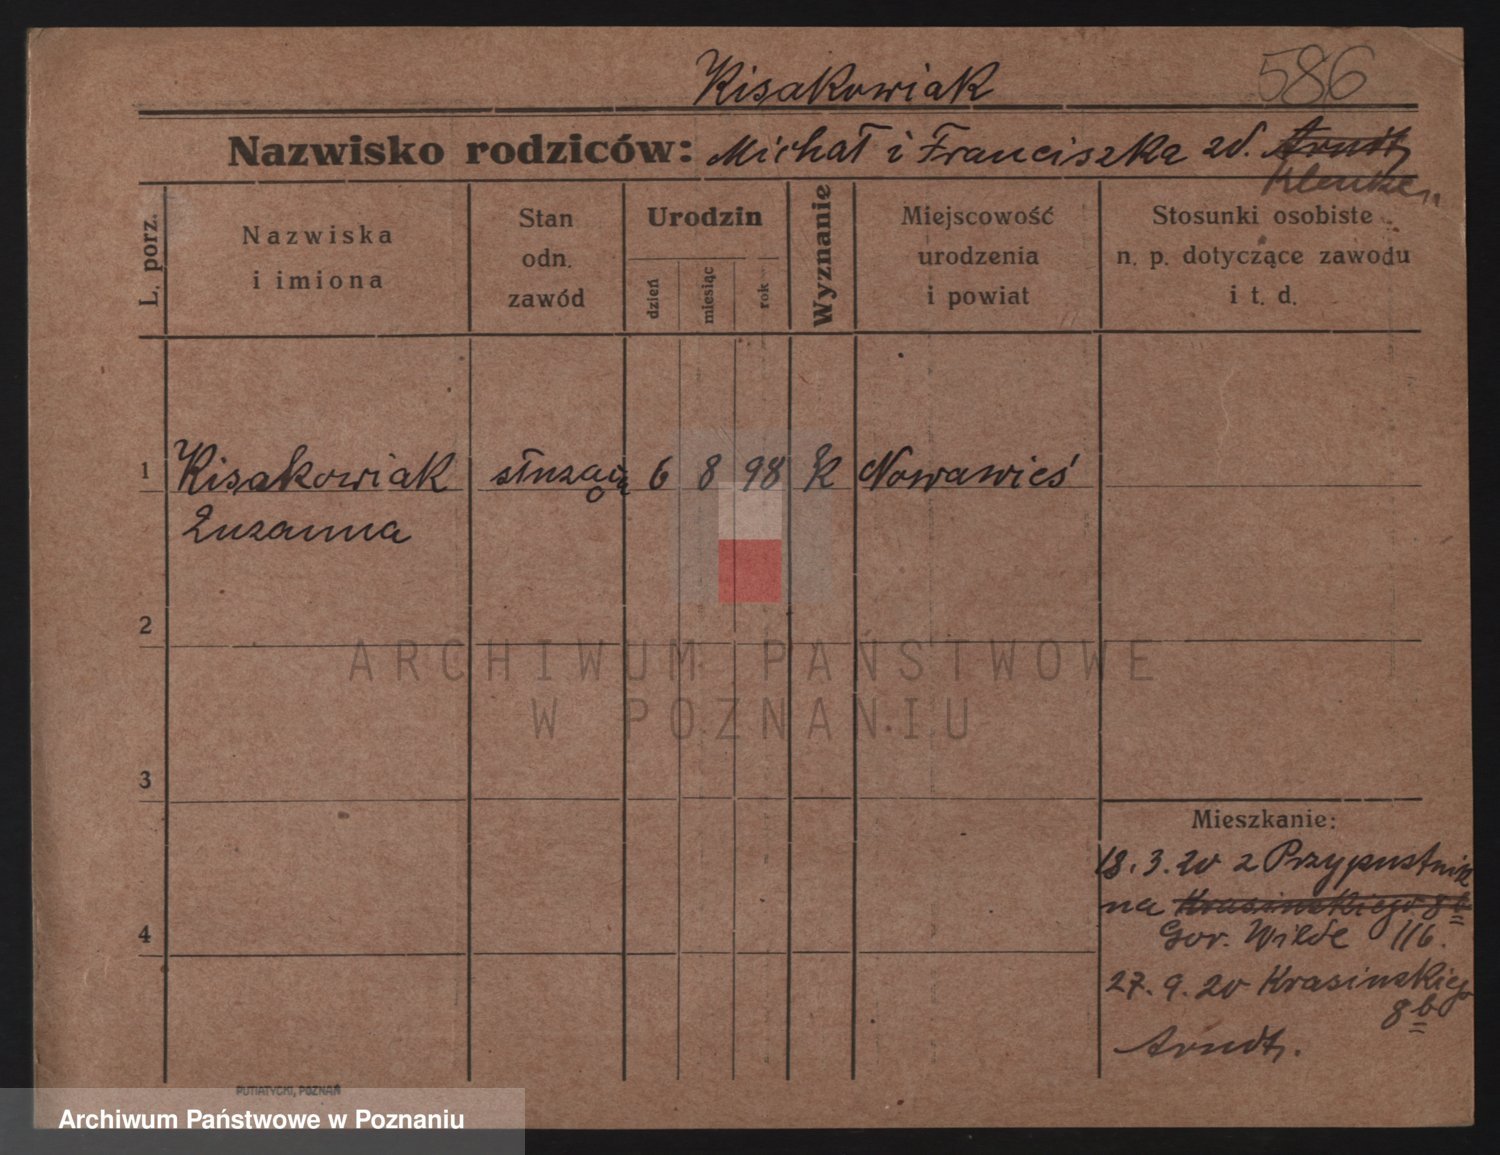 Kisakowiak 586
Nazwisko rodziców: Michał i Franciszka zd. Arndt
L. porz.
Nazwiska
i imiona
Stan
odn.
zawód
Urodzin
dzień
miesiąc
rok
Wyznanie
Miejscowość
urodzenia
i powiat
Stosunki osobiste
n. p. dotyczące zawodu
i t. d.
1 Kisakowiak służąca 6 8 98 k Nowawieś
Zuzanna
2
3
4
Mieszkanie:
18.3.20 z Przypustnik
na Krasinskiego 8b
Gor. Wilde 116.
27.9.20 Krasinskieg
8b
Arndt.
PUTIATYCKI, POZNAŃ
ARCHIWUM PAŃSTWOWE
W POZNANIU
Archiwum Państwowe w Poznaniu